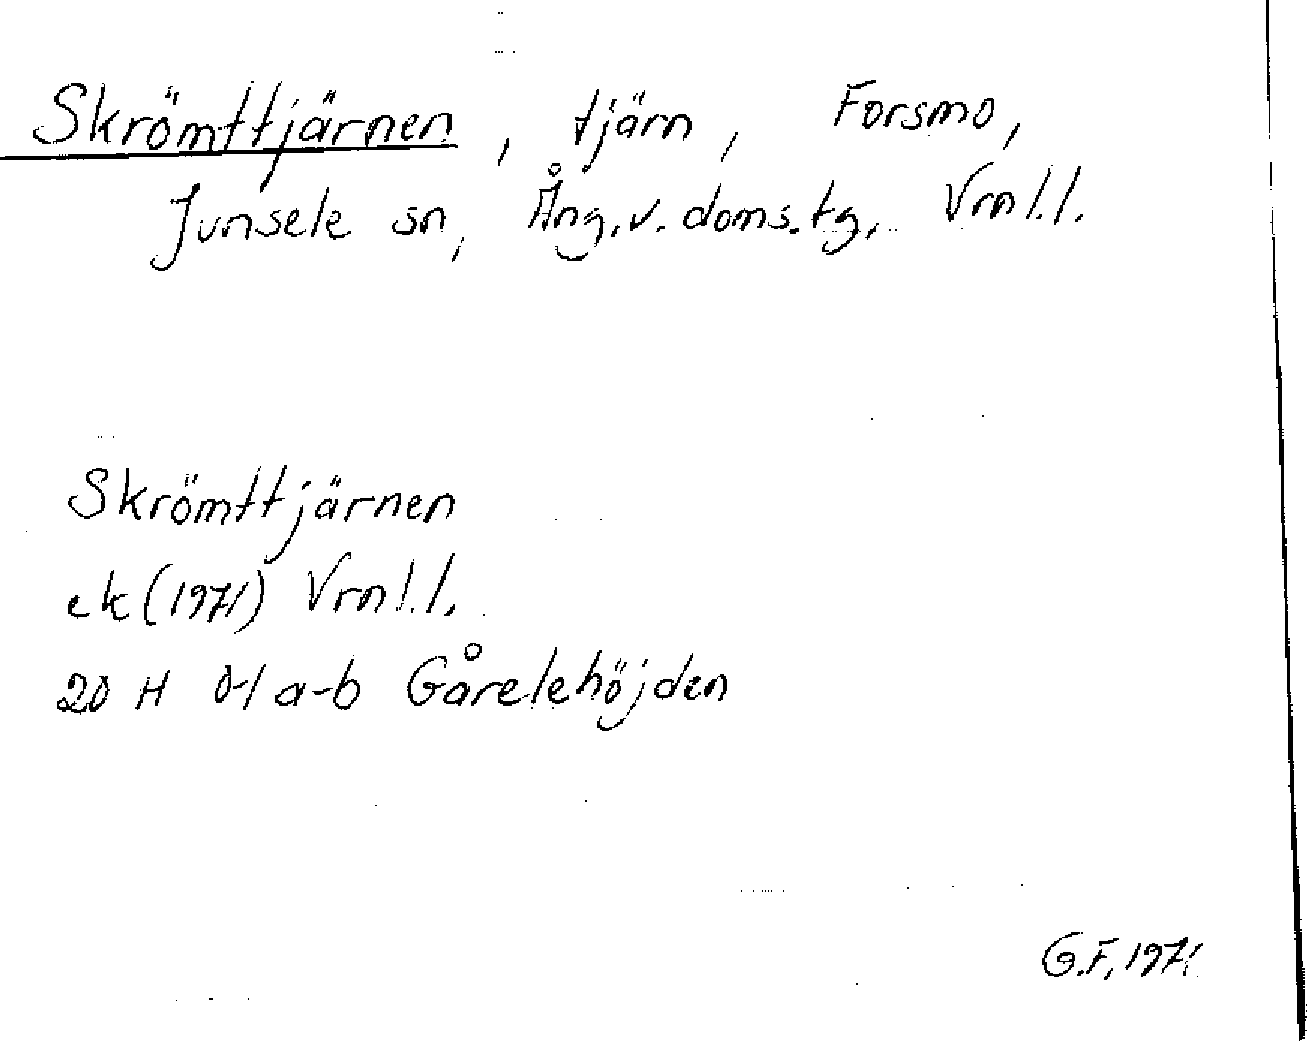 Skrömttjärnen, tjärn, Forsmo,
Junsele sn, Ång.v.doms.tg, Vrnl.l.
Skrömttjärnen
ek(1971) Vrnl.l.
20 H 0-1 a-b Gårelehöjden
G.F, 1971